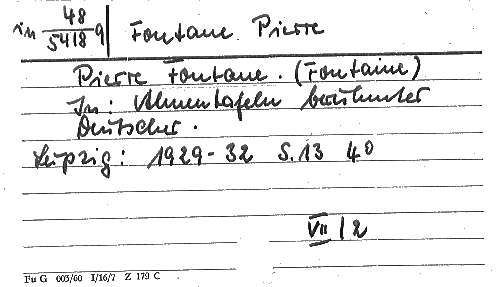 in 48/5418 q Fontane Pierre
Pierre Fontane. (Fontaine)
In: Ahnentafeln berühmter
Deutscher.
Leipzig: 1929-32 S. 13 40
VII / 2
Fu G 003/60 I/16/7 Z 179 C